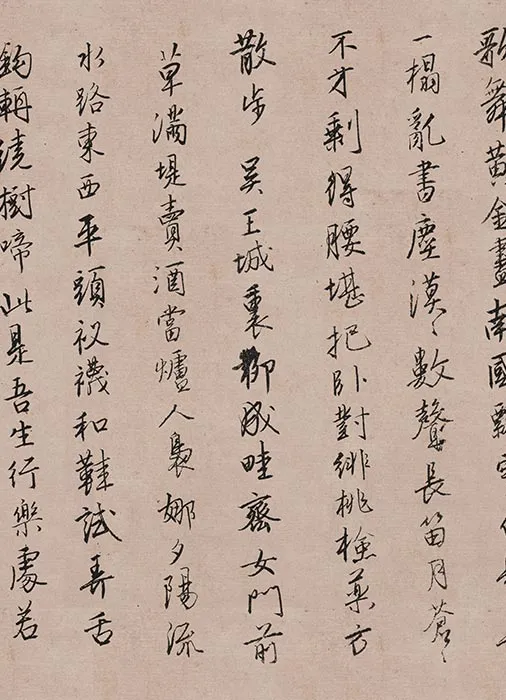 歌舞黃金盡南國飄
一榻亂書塵漠〻數聲長笛月蒼〻
不才剩得腰堪把臥對緋桃檢藥方
散步 吳王城裏柳成畦齊女門前
草滿堤賣酒當爐人裊娜夕陽流
水路東西平頭衩襪和鞋試弄舌
鉤輈繞樹啼此是吾生行樂處若